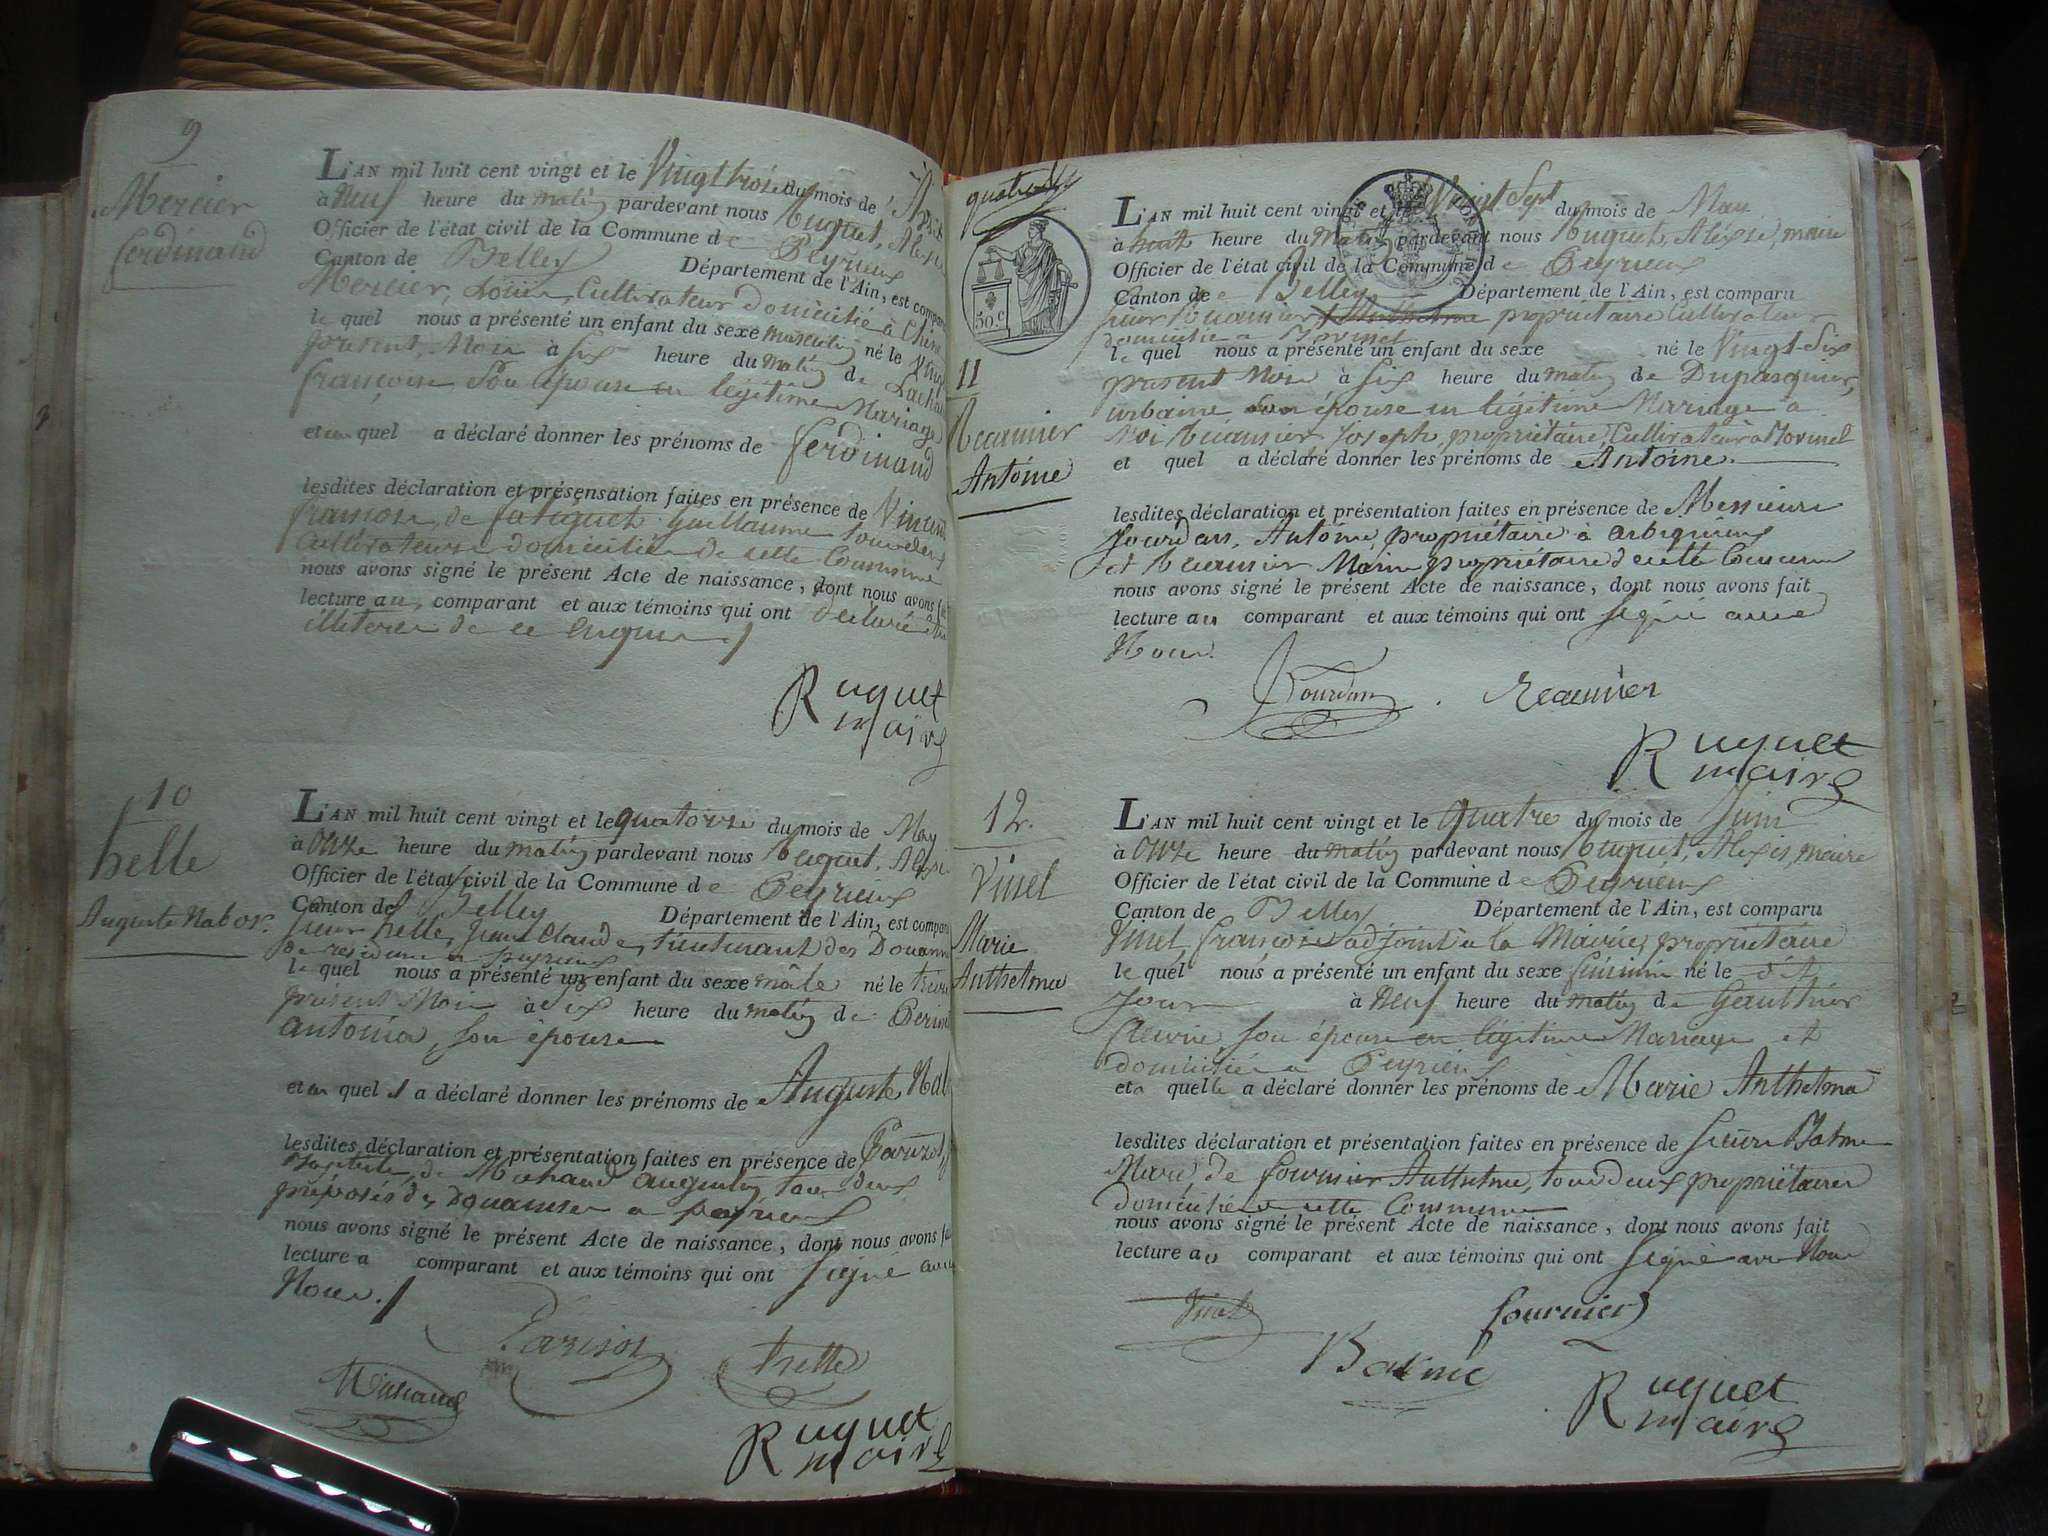 9
Mercier
ferdinand
L'AN mil huit cent vingt et le Vingt trois du mois de
à Neuf heure du matin pardevant nous Ruguet,
Officier de l'état civil de la Commune de Peyrieux
Canton de Belley Département de l'Ain, est compar
Mercier, Louis, Cultivateur domicilié à
le quel nous a présenté un enfant du sexe masculin né le
present Mois à six heure du matin de
françoise Son épouse en légitime Mariage
et au quel a déclaré donner les prénoms de ferdinand
lesdites déclaration et présensation faites en présence de
françois, de Guillaume tous deux
Cultivateurs domiciliés de cette Commune
nous avons signé le présent Acte de naissance, dont nous avons
lecture au comparant et aux témoins qui ont déclaré
illiterés de ce Enquis
Ruguet
maire
10
helle
Auguste Nabor.
L'AN mil huit cent vingt et le quatorze du mois de May
à Onze heure du matin pardevant nous Ruguet,
Officier de l'état civil de la Commune de Peyrieux
Canton de Belley Département de l'Ain, est compar
Sieur helle, Jean Claude, Lieutenant des Douannes
de residence a peyrieux
le quel nous a présenté un enfant du sexe mâle né le
présent Mois à Six heure du matin de
antonia, son épouse
et au quel a déclaré donner les prénoms de Auguste,
lesdites déclaration et présentation faites en présence de Parizot,
Baptiste, de Michaud augustin, tous deux
préposés des Douannes a peyrieux
nous avons signé le présent Acte de naissance, dont nous avons
lecture a comparant et aux témoins qui ont signé avec
Nous.
Parisot
helle
Michaud
Ruguet
maire
50.c
11
Reaunier
Antoine
L'AN mil huit cent vingt et le Vingt Sept du mois de May
à huit heure du matin pardevant nous Ruguet, Alexis, maire
Officier de l'état civil de la Commune de Peyrieux
Canton de Belley Département de l'Ain, est comparu
Sieur Reaunier Anthelme propriétaire Cultivateur
domicilié a
le quel nous a présenté un enfant du sexe né le Vingt-Six
present Mois à Six heure du matin de Dupasquier,
urbaine son épouse en légitime Mariage a
Reaunier Joseph, propriétaire Cultivateur a
et quel a déclaré donner les prénoms de Antoine.
lesdites déclaration et présentation faites en présence de Messieurs
Jourdan, Antoine, propriétaire à arbignieux
et Reaunier Marin propriétaire de cette Commune
nous avons signé le présent Acte de naissance, dont nous avons fait
lecture au comparant et aux témoins qui ont signé avec
Nous.
Jourdan
Reaunier
Ruguet
maire
12.
Vinel
Marie
Anthelma
L'AN mil huit cent vingt et le Quatre du mois de Juin
à Onze heure du matin pardevant nous Ruguet, Alexis, maire
Officier de l'état civil de la Commune de Peyrieux
Canton de Belley Département de l'Ain, est comparu
Vinel, françois adjoint a la Mairie, propriétaire
le quel nous a présenté un enfant du sexe féminin né le dit
Jour à Neuf heure du matin de Gauthier
son épouse en légitime Mariage et
domiciliée a Peyrieux
et a quelle a déclaré donner les prénoms de Marie Anthelma
lesdites déclaration et présentation faites en présence de Sieurs Balme
Marc, de fournier Anthelme, tous deux propriétaires
domiciliés de cette Commune
nous avons signé le présent Acte de naissance, dont nous avons fait
lecture au comparant et aux témoins qui ont signé avec Nous
Vinel
fournier
Balme
Ruguet
maire